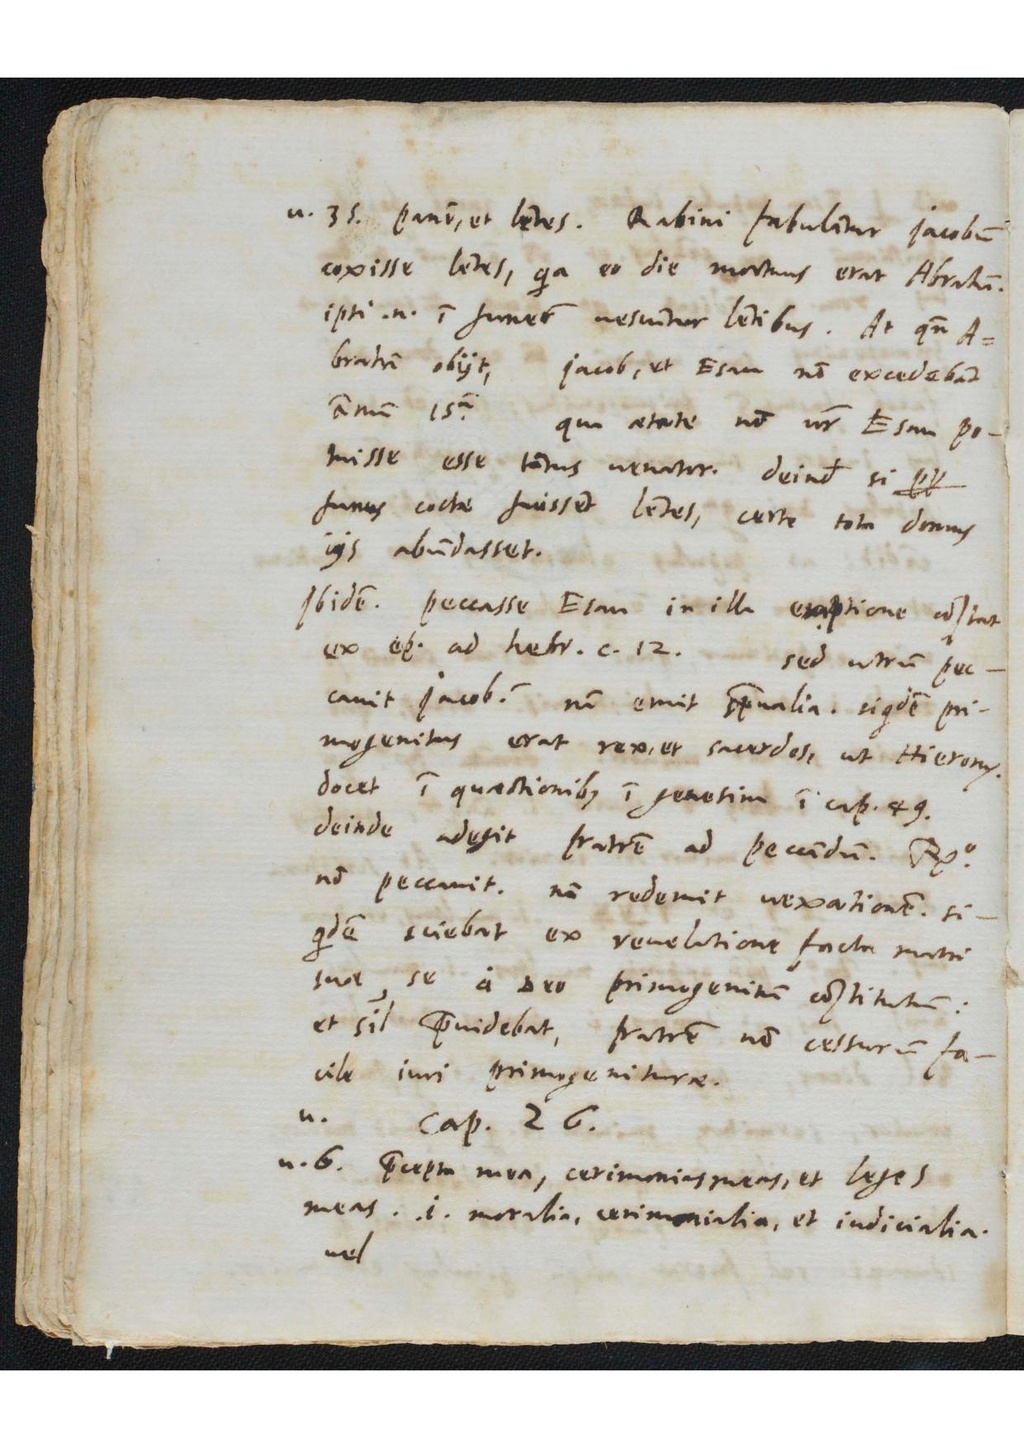 u. 35. panē, et lētes. Rabini fabulātur jacobū
coxisse lētes, qa eo die mortuus erat Abrahā.
ipsi .n. ī funere uescūtur lētibus. At qn̄ A=
brahā obijt, jacob, et Esau nō excedebāt
ānum 15ū. qua ætate nō ur̄ Esau po-
tuisse esse tātus uenator. deinde si pp
funus coctæ fuissēt lētes, certe tota domus
ijs abūdasset.
Ibidē. peccasse Esau in illa emptione cōstat
ex ep. ad hebr. c. 12. sed utrū pec-
cauit jacob? nā emit sp̄ualia. siqdē pri-
mogenitus erat rex, et sacerdos, ut Hierony.
docet ī quæstionibꝫ ī genesim ī cap. 49.
deinde adegit fratrē ad peccādū. Rx̄º.
nō peccauit. nā redemit uexationē. si-
qdē sciebat ex reuelatione facta matri
suæ, se à Deo primogenitū cōstitutum:
et sil̄ p̄uidebat, fratrē nō cessurū fa-
cile iuri primogenituræ.
u. Cap. 26.
u. 6. p̄cepta mea, cerimonias meas, et leges
meas. .i. moralia, cerimonialia, et iudicialia.
uel